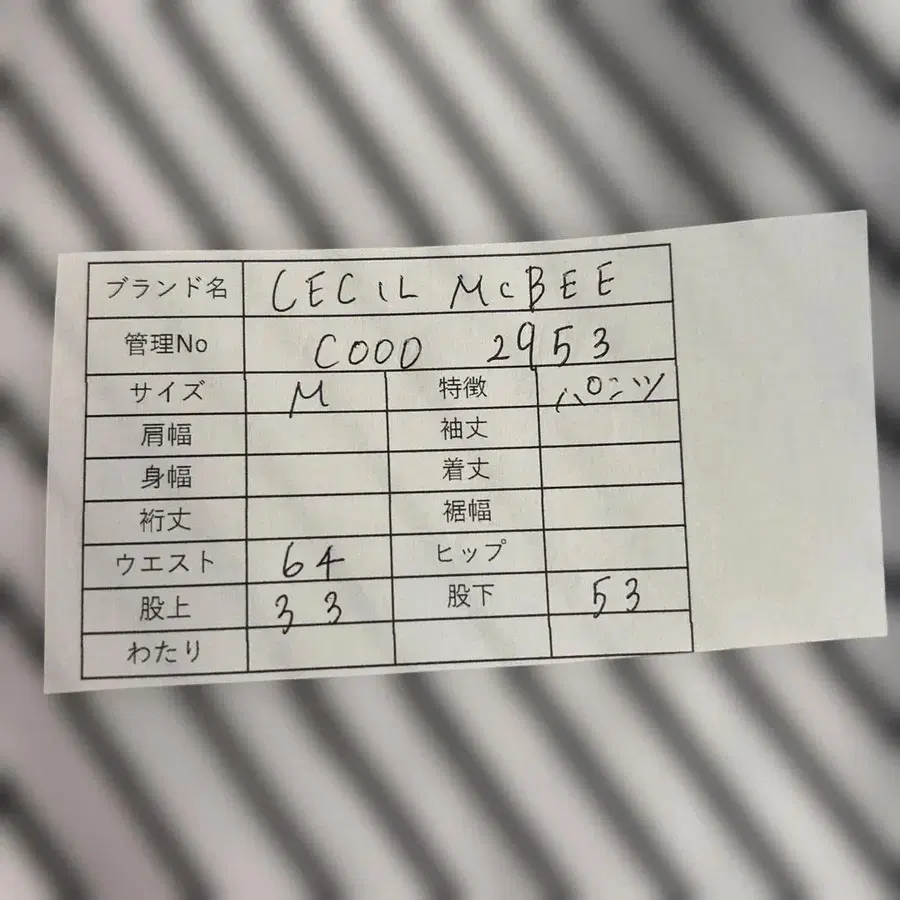 ブランド名 CECIL McBEE
管理No COOD 2953
サイズ M 特徴 パンツ
肩幅 袖丈
身幅 着丈
裄丈 裾幅
ウエスト 64 ヒップ
股上 33 股下 53
わたり